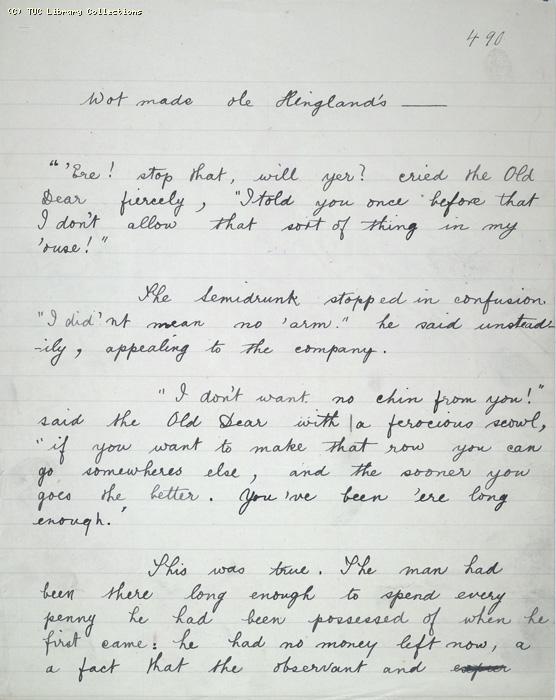 (C) TUC Library Collections
490
Wot made ole Hingland's ——
"'Ere! stop that, will yer? cried the Old
Dear fiercely, "I told you once before that
I don't allow that sort of thing in my
'ouse!"
The Semidrunk stopped in confusion
"I did'nt mean no 'arm." he said unstead-
-ily, appealing to the company.
"I don't want no chin from you!"
said the Old Dear with a ferocious scowl,
"if you want to make that row you can
go somewheres else, and the sooner you
goes the better. You've been 'ere long
enough.'
This was true. The man had
been there long enough to spend every
penny he had been possessed of when he
first came: he had no money left now, a
a fact that the observant and